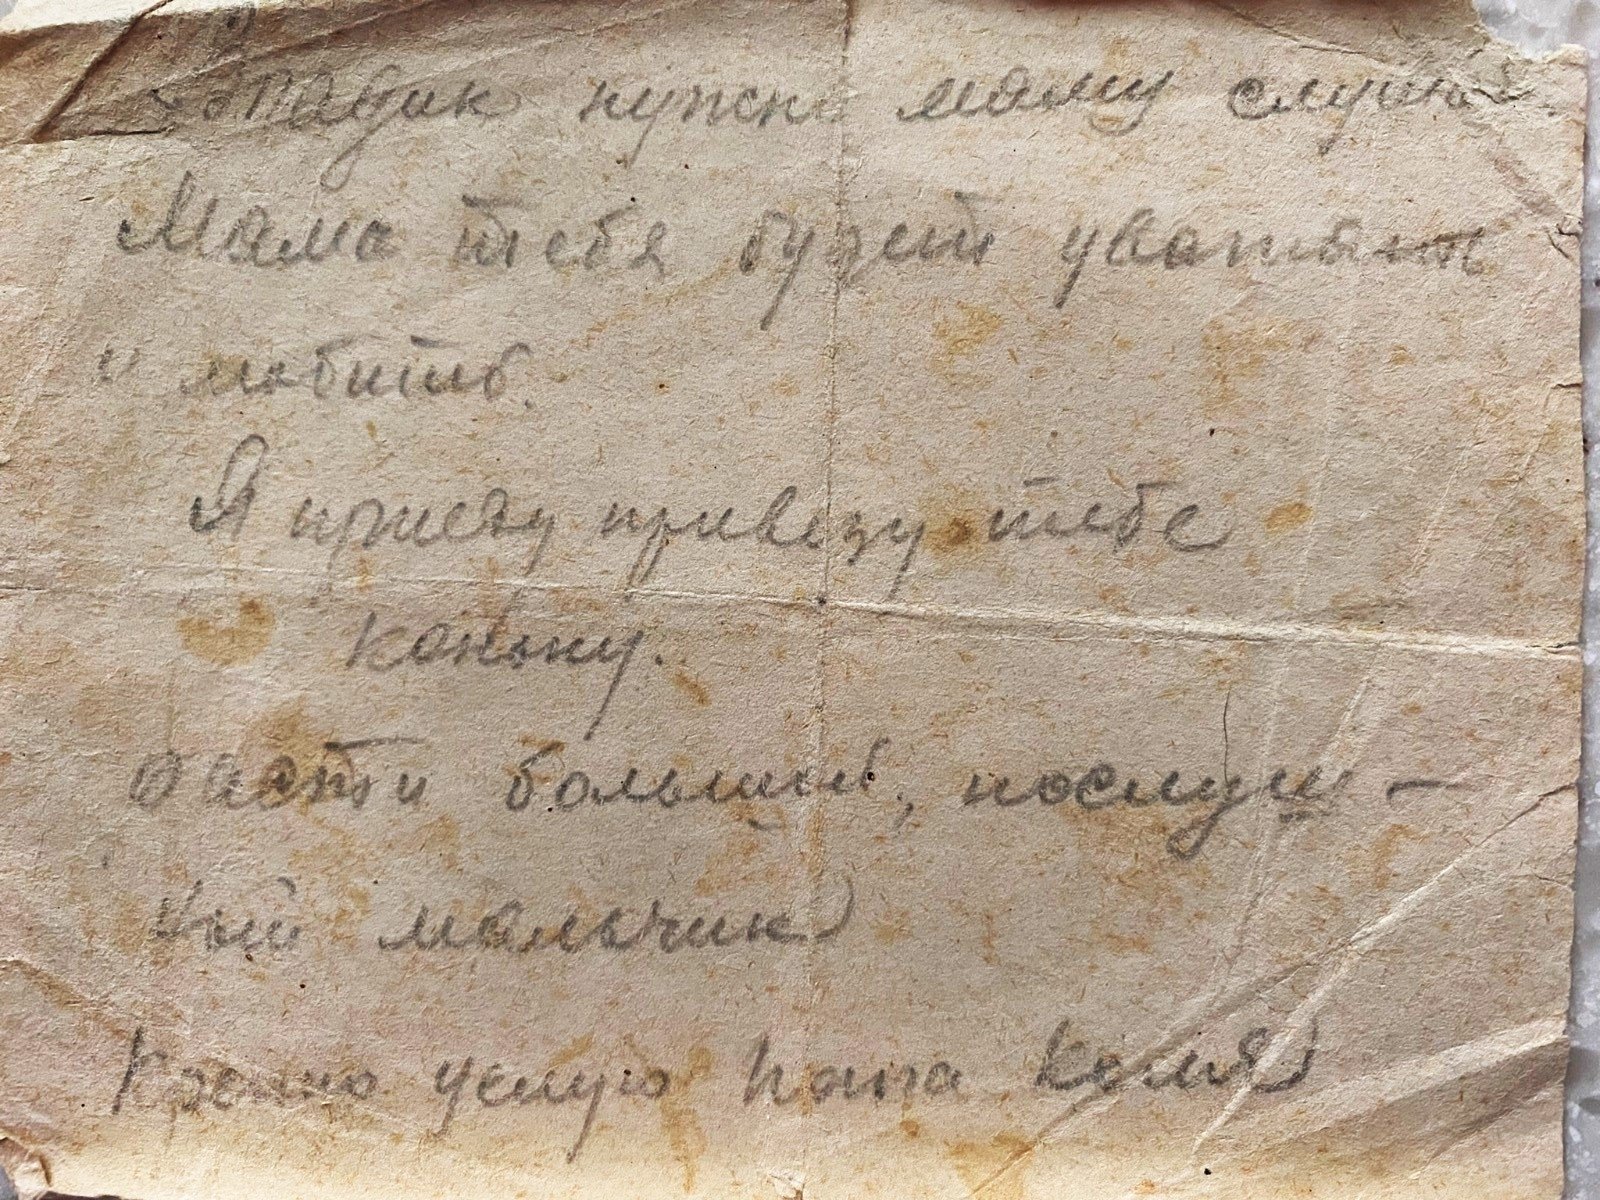 нужно маму слушать.
Мама тебя будет уважать
и любить.
Я приеду привезу тебе
коньку.
Расти большой, послуш-
ный мальчик
Крепко целую папа Коля